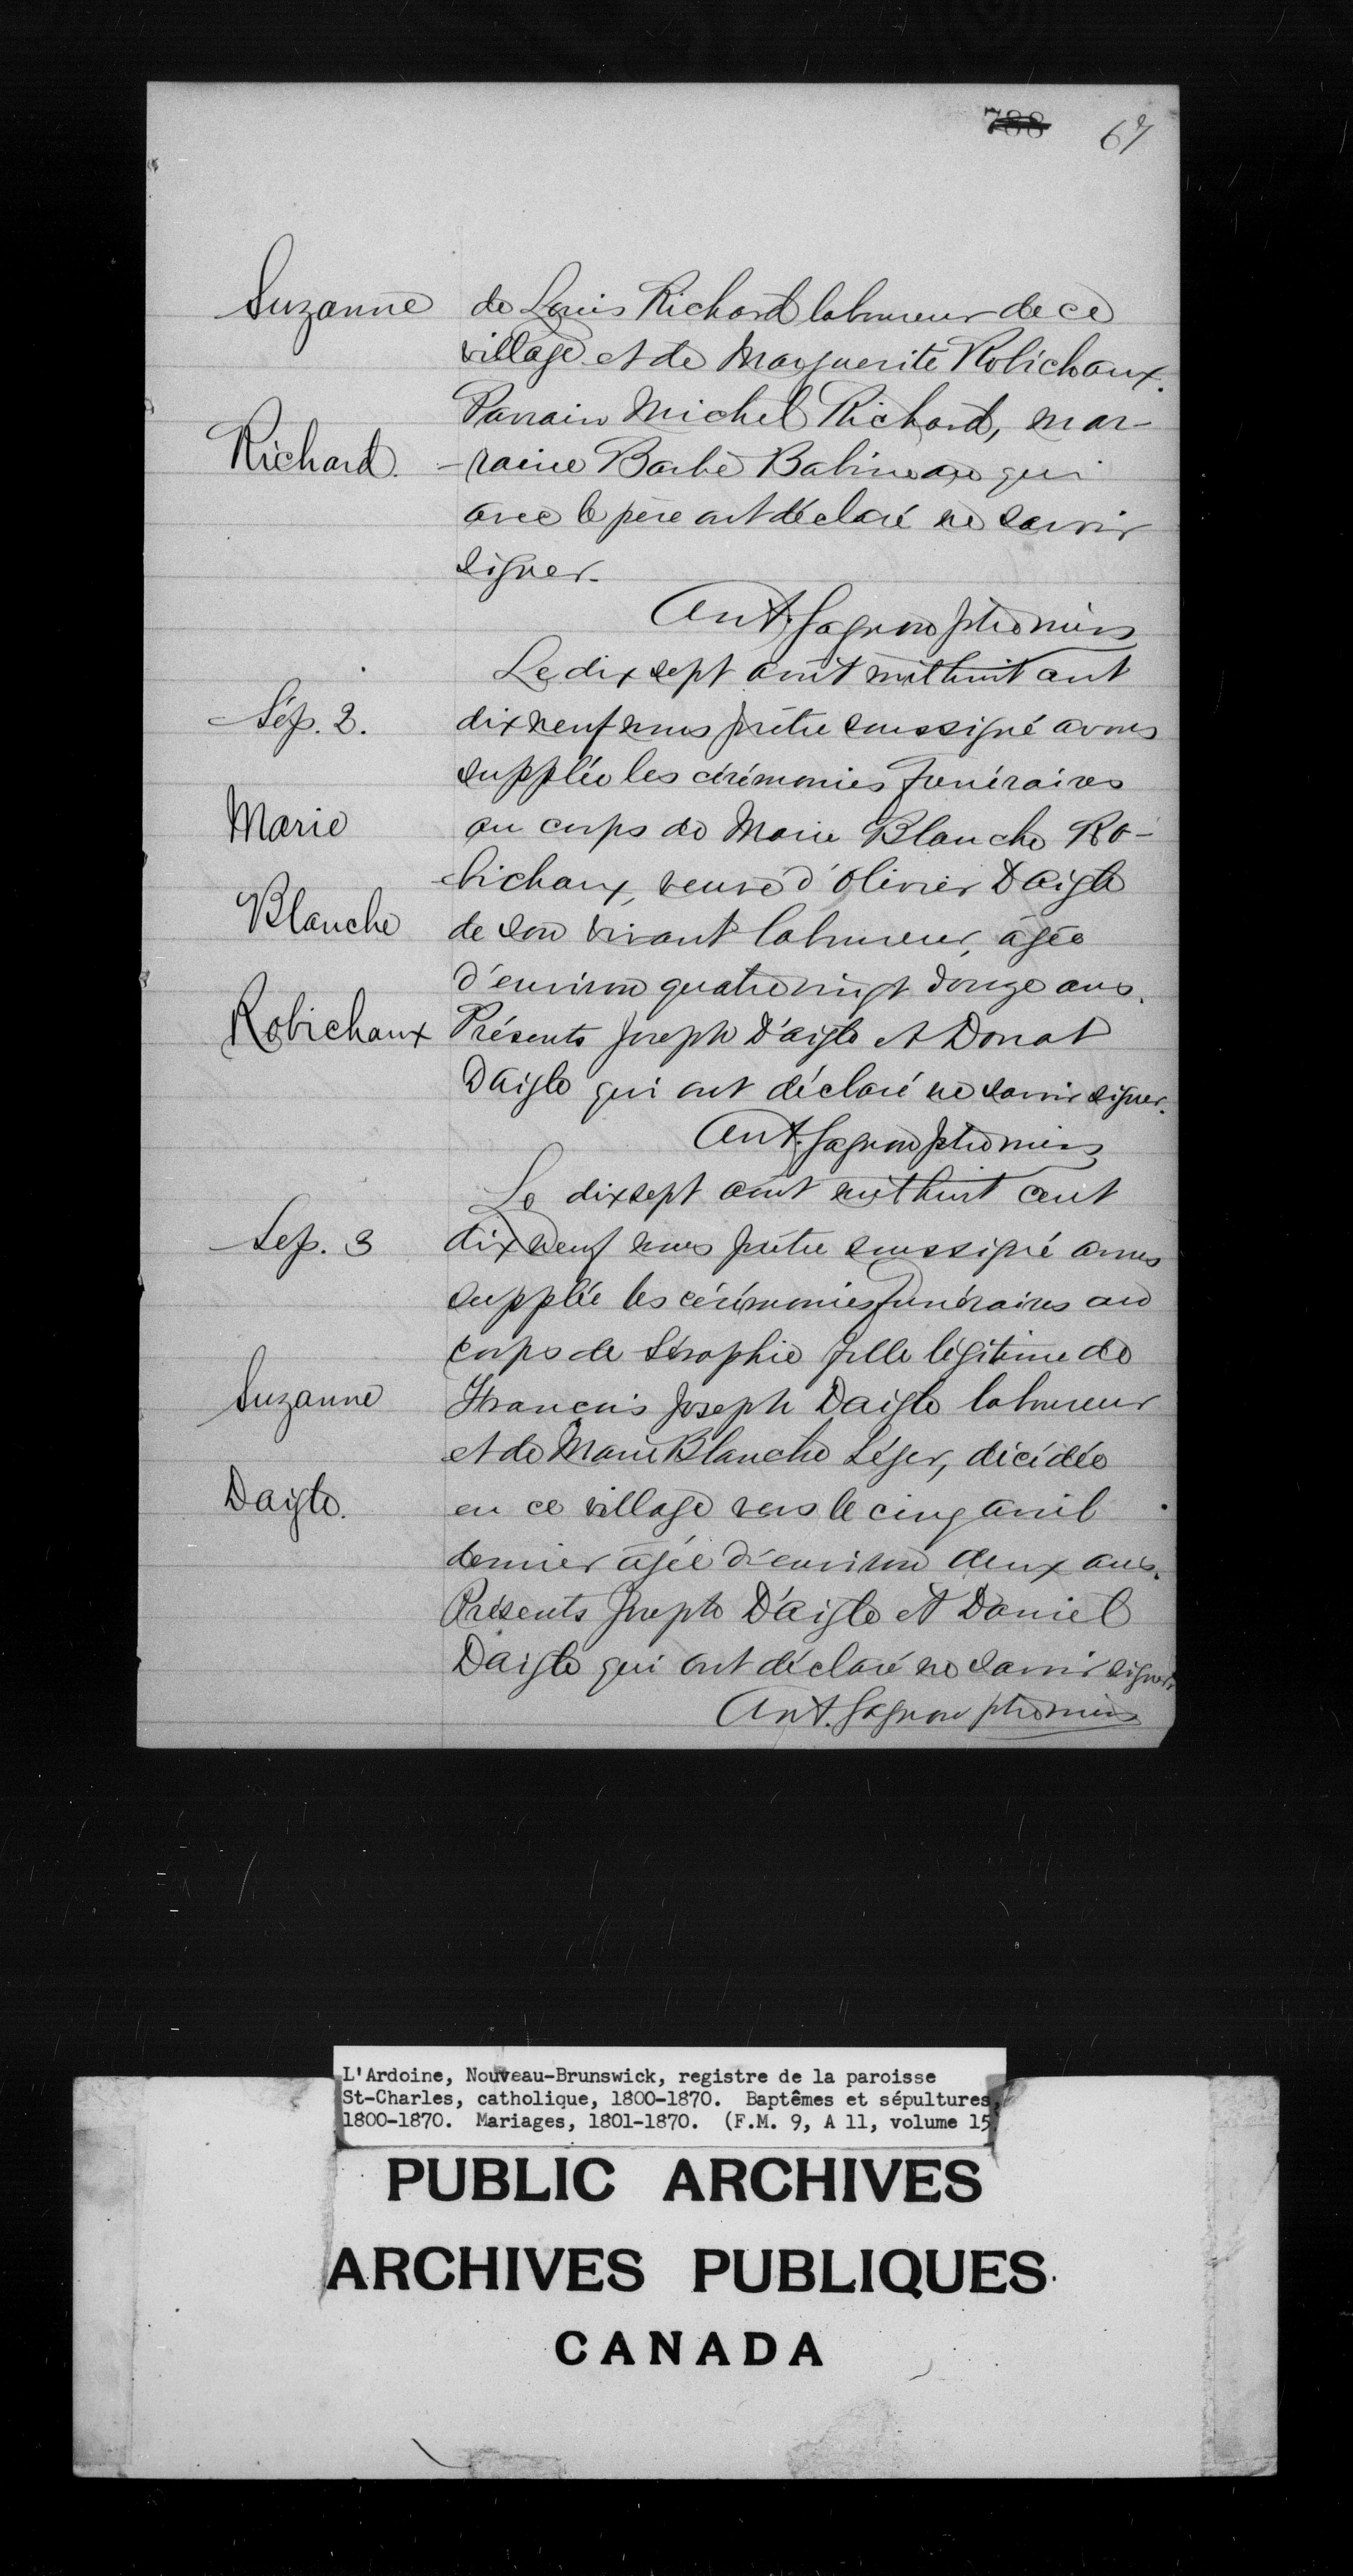 788 67
Suzanne
Richard.
de Louis Richard laboureur de ce
village et de Marguerite Robichaux.
Parrain Michel Richard, mar-
-raine Barbe Babineau qui
avec le père ont déclaré ne savoir
signer.
Ant. Gagnon ptre miss
Sép. 2.
Marie
Blanche
Robichaux
Le dix sept août mil huit cent
dix neuf nous prêtre soussigné avons
supplée les cérémonies funéraires
au corps de Marie Blanche Ro-
bichaux, veuve d'Olivier Daigle
de son vivant laboureur, âgée
d'environ quatre vingt douze ans.
Présents Joseph D'aigle et Donat
Daigle qui ont déclaré ne savoir signer.
Ant. Gagnon ptre miss
Sep. 3
Suzanne
Daigle.
Le dix sept août mil huit cent
dix neuf nous prêtre soussigné avons
supplée les cérémonies funéraires au
corps de Séraphie fille légitime de
François Joseph Daigle laboureur
et de Marie Blanche Léger, décédée
en ce village vers le cinq avril
dernier âgée d'environ deux ans.
Présents Joseph D'aigle et Daniel
Daigle qui ont déclaré ne savoir signer.
Ant. Gagnon ptre miss
L'Ardoine, Nouveau-Brunswick, registre de la paroisse
St-Charles, catholique, 1800-1870. Baptêmes et sépultures,
1800-1870. Mariages, 1801-1870. (F.M. 9, A 11, volume 15)
PUBLIC ARCHIVES
ARCHIVES PUBLIQUES
CANADA